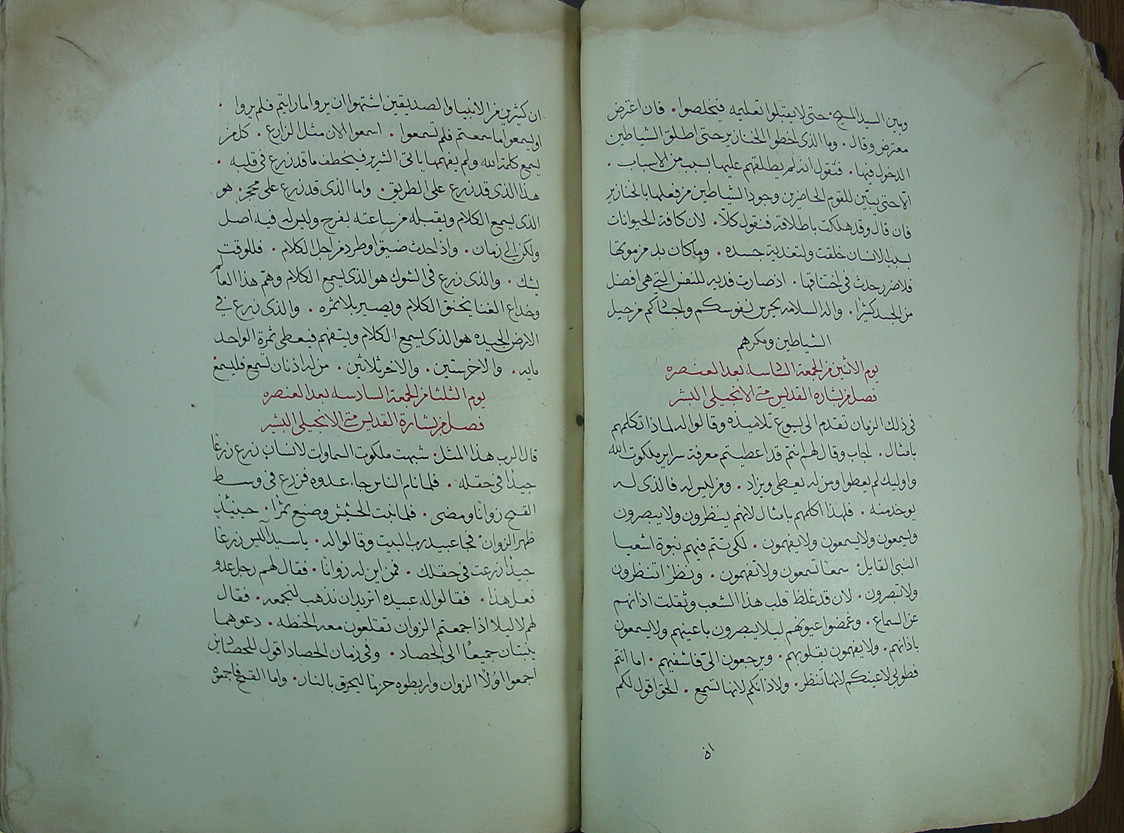 وبين السيد المسيح حتى لا يقبلوا تعليمه فيخلصوا . فان اعترض
معترض وقال . وما الذى لحظوا الخنازير حتى اطلق الشياطين
الدخول فيها . فنقول انه لم يطلقهم عليها لسبب من الاسباب .
الا حتى يبين للقوم الحاضرين وجود الشياطين من فعلها بالخنازير
فان قال وقد هلكت باطلاقه فنقول كلا . لان كافة الحيوانات
بسبب الانسان خلقت ولتغذية جسده . وما كان بد من موتها
فلا ضرر حدث فى اختناقها . اذ صارت فديه للنفس التي هى افضل
من الجسد كثيرا . واله السلامه يحرس نفوسكم واجسادكم من حيل
الشياطين ومكرهم
يوم الاثنين من الجمعة السادسه بعد العنصره
فصل من بشارة القديس متى الانجيلى البشير
فى ذلك الزمان تقدم الى يسوع تلاميذه وقالوا له لماذا تكلمهم
بامثال . اجاب وقال لهم انتم قد اعطيتم معرفة سراير ملكوت الله
واوليك لم يعطوا ومن له يعطى ويزاد . ومن ليس له فالذى له
يوخذ منه . فلهذا اكلمهم بامثال لانهم ينظرون ولا يبصرون
ويسمعون ولا يسمعون ولا يفهمون . لكى تتم فيهم نبوة اشعيا
النبى القايل . سمعا تسمعون ولا تفهمون . ونظرا تنظرون
ولا تبصرون . لان قد غلظ قلب هذا الشعب وثقلت اذانهم
عن السماع . وغمضوا عيونهم ليلا يبصرون باعينهم ولا يسمعون
باذانهم . ولا يفهمون بقلوبهم . ويرجعون الى فاشفيهم . اما انتم
فطوبى لاعينكم لانها تنظر . ولاذانكم لانها تسمع . الحق اقول لكم
ان كثيرين من الانبيا والصديقين اشتهوا ان يروا ما رايتم فلم يروا .
او يسمعوا ما سمعتم فلم تسمعوا . اسمعوا الان مثل الزارع . كل من
يسمع كلمة الله ولم يفهمها ياتى الشرير فيخطف ما قد زرع فى قلبه .
هذا الذى قد زرع على الطريق . واما الذى قد زرع على محجر . هو
الذى يسمع الكلام ويقبله من ساعته بفرح وليس له فيه اصل
ولكن الى زمان . واذا حدث ضيق او طرد من اجل الكلام . فللوقت
يشك . والذى زرع فى الشوك هو الذى يسمع الكلام وهم هذا العالم
وخداع الغنا يخنق الكلام ويصير بلا ثمره . والذى زرع فى
الارض الجيده هو الذى يسمع الكلام ويتفهم فيعطى ثمرة الواحد
مايه . والاخر ستين . والاخر ثلاثين . من له اذنان لتسمع فليسمع
يوم الثلثا من الجمعة السادسه بعد العنصره
فصل من بشارة القديس متى الانجيلى البشير
قال الرب هذا المثل . شبهت ملكوت السماوات لانسان زرع زرعا
جيدا فى حقله . فلما نام الناس جاء عدوه فزرع فى وسط
القمح زوانا ومضى . فلما نبت الحشيش وصنع ثمرا . حينيذ
ظهر الزوان . فجا عبيد رب البيت وقالوا له . يا سيد اليس زرعا
جيدا زرعت فى حقلك . فمن اين له زوانا . فقال لهم رجل عدو
فعل هذا . فقالوا له عبيده اتريد ان نذهب لنجمعه . فقال
لهم لا ليلا اذا جمعتم الزوان تقلعون معه الحنطه . دعوهما
ينبتان جميعا الى الحصاد . وفى زمان الحصاد اقول للحصادين
اجمعوا اولا الزوان واربطوه حزما ليحرق بالنار . واما القمح فاجمعوه